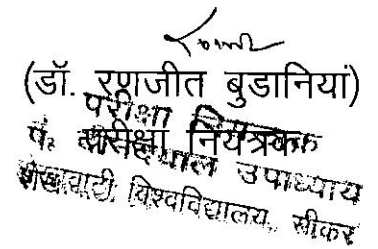 (डॉ. रणजीत बुडानियां)
परीक्षा नियंत्रक
परीक्षा नियंत्रक
पं. दीनदयाल उपाध्याय
शेखावाटी विश्वविद्यालय, सीकर